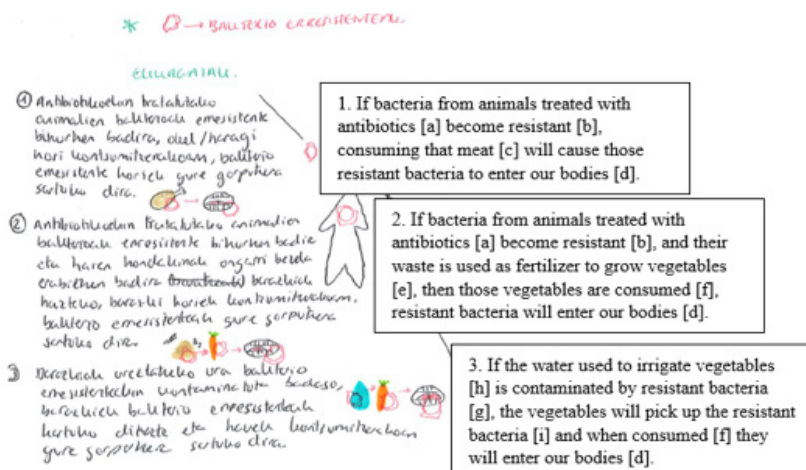 * → BAKTERIO ERRESISTENTEAK.
ELIKAGAIAK.
① Antibiotikoekin tratatutako
animalien bakterioak erresistente
bihurtzen badira, okel/haragi
hori kontsumitzerakoan, bakterio
erresistente horiek gure gorputzera
sartuko dira.
② Antibiotikoekin tratatutako animalien
bakterioak erresistente bihurtzen badira
eta haren hondakinak ongarri bezala
erabiltzen badira barazkiak
hazteko, barazki horiek kontsumitzerakoan,
bakterio erresistenteak gure gorputzera
sartuko dira.
3 Barazkiak ureztatzeko ura bakterio
erresistenteekin kontaminatuta badago,
barazkiek bakterio erresistenteak
hartuko dituzte eta hauek kontsumitzerakoan
gure gorputzera sartuko dira.
1. If bacteria from animals treated with
antibiotics [a] become resistant [b],
consuming that meat [c] will cause those
resistant bacteria to enter our bodies [d].
2. If bacteria from animals treated with
antibiotics [a] become resistant [b], and their
waste is used as fertilizer to grow vegetables
[e], then those vegetables are consumed [f],
resistant bacteria will enter our bodies [d].
3. If the water used to irrigate vegetables
[h] is contaminated by resistant bacteria
[g], the vegetables will pick up the resistant
bacteria [i] and when consumed [f] they
will enter our bodies [d].